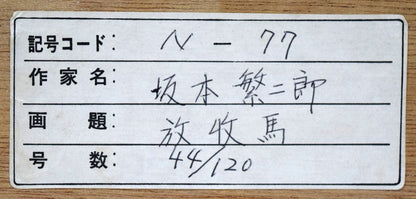 記号コード： N - 77
作家名： 坂本繁二郎
画題： 放牧馬
号数： 44/120